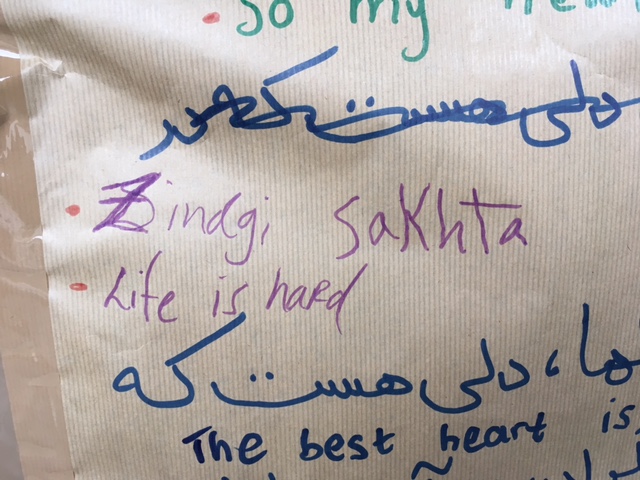 So my
دلی هست
Zindgi sakhta
Life is hard
ها، دلی هست که
The best heart is